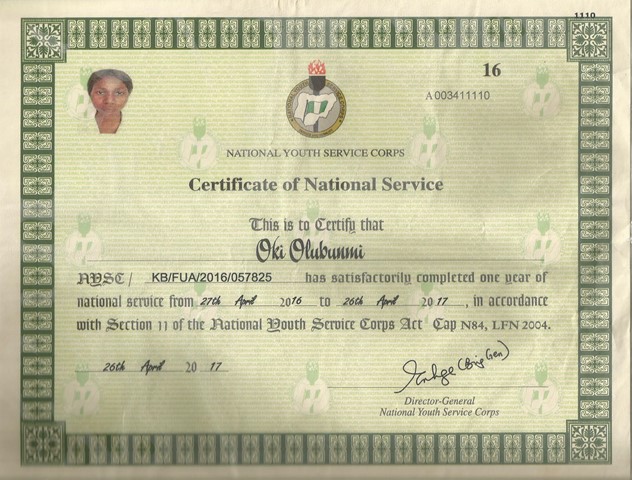 1110
16
A 003411110
NATIONAL YOUTH SERVICE CORPS
Certificate of National Service
This is to Certify that
Oki Olubunmi
NYSC/ KB/FUA/2016/057825 has satisfactorily completed one year of
national service from 27th April 2016 to 26th April 2017, in accordance
with Section 11 of the National Youth Service Corps Act Cap N84, LFN 2004.
26th April 2017
(Brig Gen)
Director-General
National Youth Service Corps